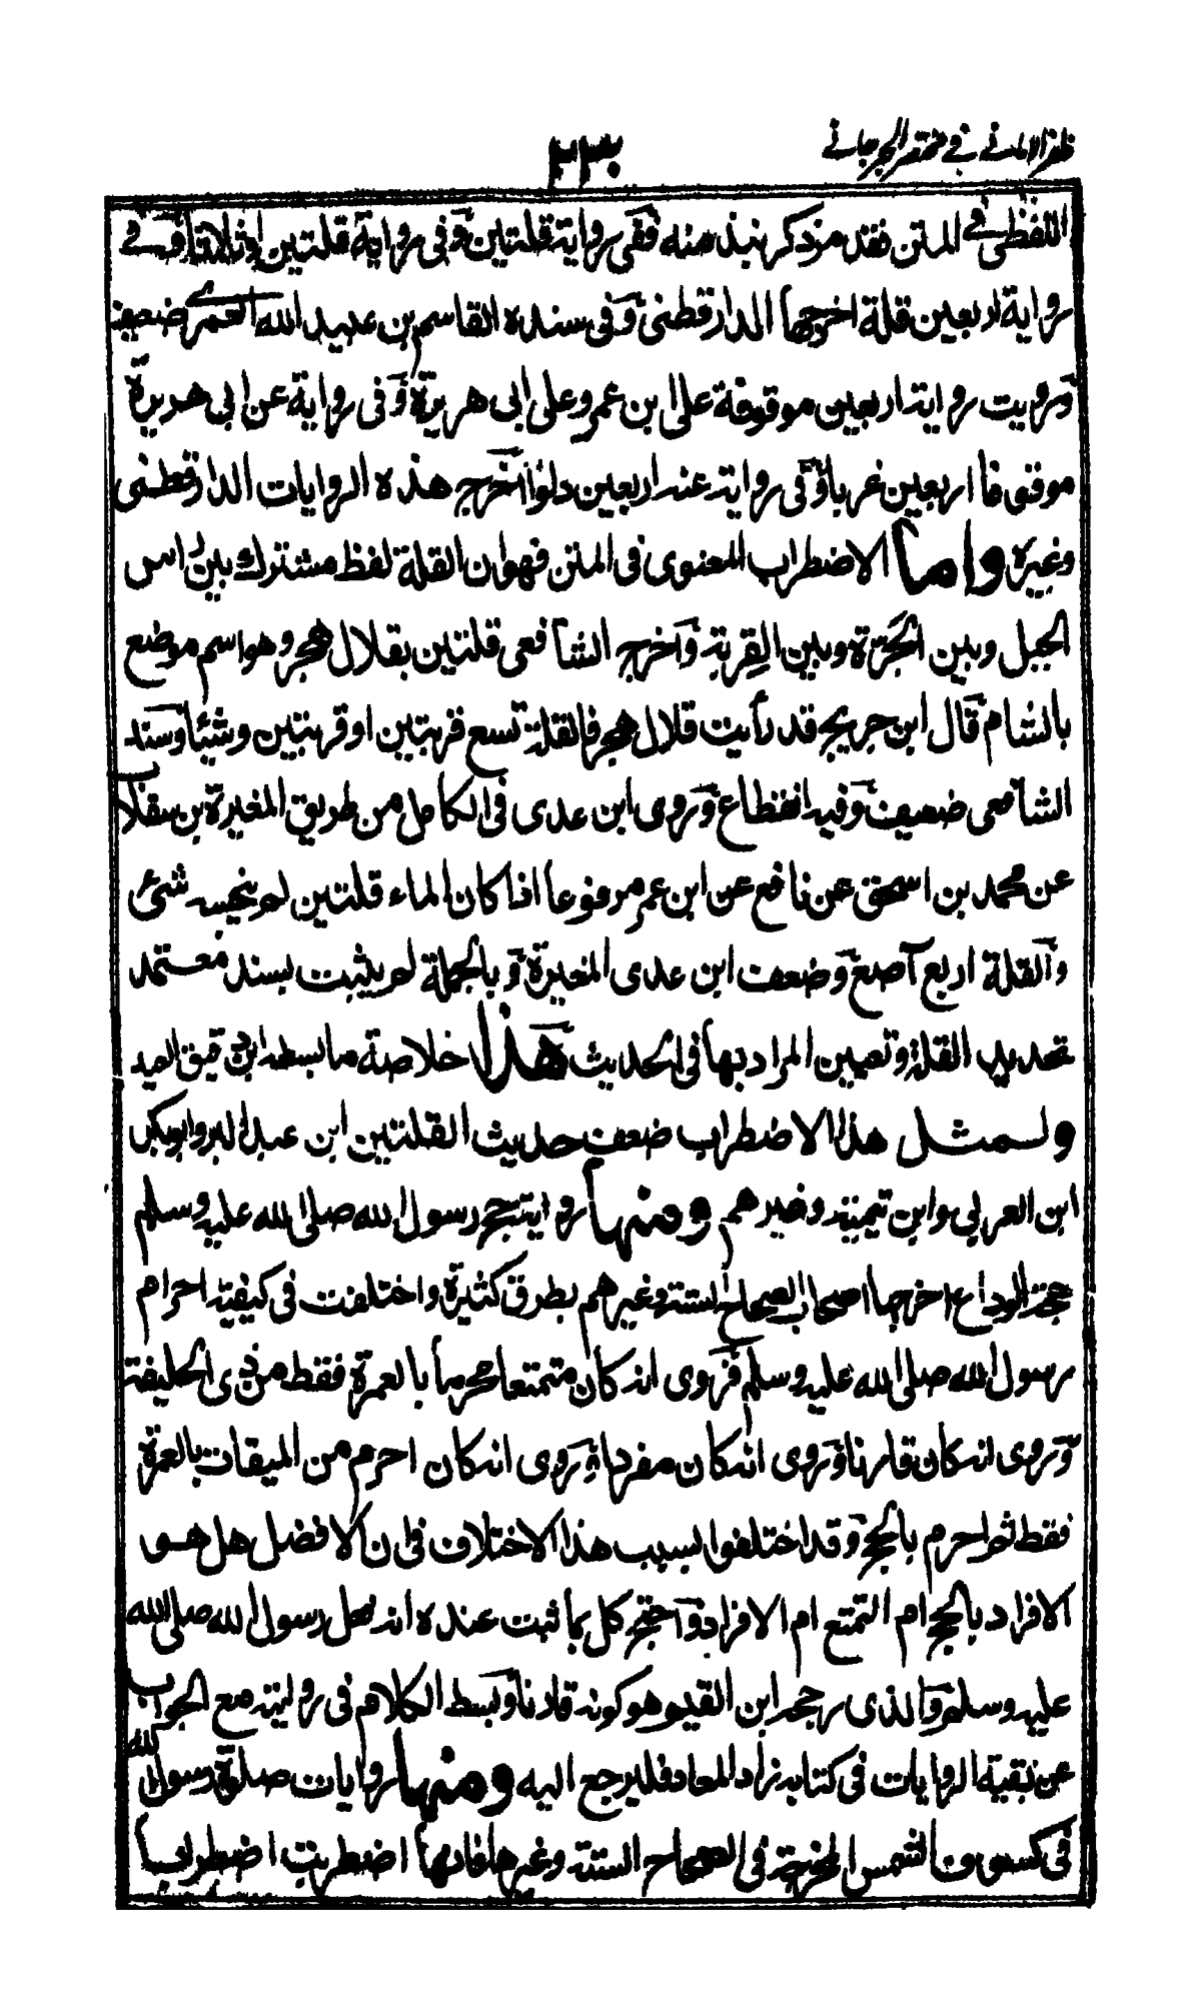 ظفر الامانى في مختصر الجرجاني
٢٣٠
اللفظى في المتن فقد مر ذكر نبذ منه ففى رواية قلتين وفى رواية قلتين او ثلاثا وفي
رواية اربعين قلة اخرجها الدارقطنى وفى سنده القاسم بن عبيد الله العمرى ضعيف
ورويت رواية اربعين موقوفة على ابن عمرو وعلى ابى هريرة وفى رواية عن ابى هريرة
موقوفا اربعين غربا وفى رواية عنه اربعين دلوا اخرج هذه الروايات الدارقطنى
وغيره واما الاضطراب المعنوى فى المتن فهو ان القلة لفظ مشترك بين راس
الجبل وبين الجرة وبين القربة واخرج الشافعى قلتين بقلال هجر وهو اسم موضع
بالشام قال ابن جريج قد رأيت قلال هجر فالقلة تسع قربتين او قربتين وشيئا وسند
الشافعى ضعيف وفيه انقطاع وروى ابن عدى فى الكامل من طريق المغيرة بن سقلاب
عن محمد بن اسحق عن نافع عن ابن عمر مرفوعا اذا كان الماء قلتين لم ينجسه شئ
والقلة اربع آصع وضعف ابن عدى المغيرة وبالجملة لم يثبت بسند معتمد
تحديد القلة وتعيين المراد بها فى الحديث هذا خلاصة ما بسطه ابن دقيق العيد
ولمثل هذا الاضطراب ضعف حديث القلتين ابن عبد البر وابو بكر
ابن العربي وابن تيمية وغيرهم ومنها رواية حج رسول الله صلى الله عليه وسلم
حجة الوداع اخرجها اصحاب الصحاح الستة وغيرهم بطرق كثيرة واختلفت فى كيفية احرام
رسول الله صلى الله عليه وسلم فروى انه كان متمتعا محرما بالعمرة فقط من ذى الحليفة
وروى انه كان قارنا وروى انه كان مفردا وروى انه كان احرم من الميقات بالعمرة
فقط ثم احرم بالحج وقد اختلفوا بسبب هذا الاختلاف فى ان الافضل هل هو
الافراد بالحج ام التمتع ام الافراد واحتج كل بما ثبت عنده انه فعل رسول الله صلى الله
عليه وسلم والذى رجحه ابن القيم هو كونه قارنا وبسط الكلام فى روايته مع الجواب
عن بقية الروايات فى كتابه زاد المعاد فليرجع اليه ومنها روايات صلوة رسول الله
فى كسوف الشمس المخرجة فى الصحاح الستة وغيرها فانها اضطربت اضطرابا